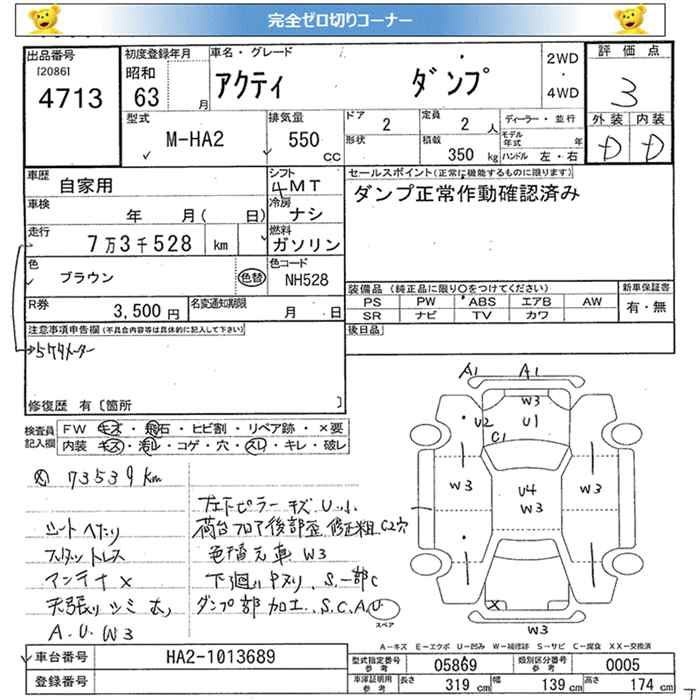 完全ゼロ切りコーナー
出品番号
[2086]
4713
初度登録年月
昭和
63 月
車名・グレード
アクティ ダンプ
2WD
・
4WD
評価点
3
外装 内装
D D
型式
M-HA2
排気量
550
CC
ドア
2
形状
定員
2 人
積載
350 kg
ディーラー・並行
モデル年式 年
ハンドル 左・右
車歴
自家用
シフト
4MT
車検
年 月( 日)
冷房
ナシ
走行
7万3千528 km
燃料
ガソリン
色
ブラウン
色替
色コード
NH528
R券
3,500円
名変通知期限
月 日
セールスポイント(正常に機能するものに限ります)
ダンプ正常作動確認済み
装備品(純正品に限り〇をつけてください)
PS PW ABS エアB AW
SR ナビ TV カワ
新車保証書
有・無
後日品
注意事項申告欄(不具合内容等は具体的に記入して下さい)
5ケタメーター
修復歴 有〔箇所 〕
検査員記入欄
FW キズ・飛石・ヒビ割・リペア跡・×要
内装 キズ・汚れ・コゲ・穴・スレ・キレ・破レ
73539km
シートヘたり
スタットレス
アンテナ×
天張りシミ大
A.U W3
左下ピラーキズ U小
荷台フロア後部歪 修正粗 C2穴
色替元車 W3
下廻り中サリ、S.一部C
ダンプ部加工、S.C.A.U
A1 A1
W3
U2 U1
C1
W3 U4 W3
W3
X
W3
スペア
A-キズ E-エクボ U-凹み W-補修跡 S-サビ C-腐食 XX-交換済
車台番号 HA2-1013689
登録番号
型式指定番号 参考 05869 類別区分番号 参考 0005
車庫証明用 参考 長さ 319 cm 幅 139 cm 高さ 174 cm